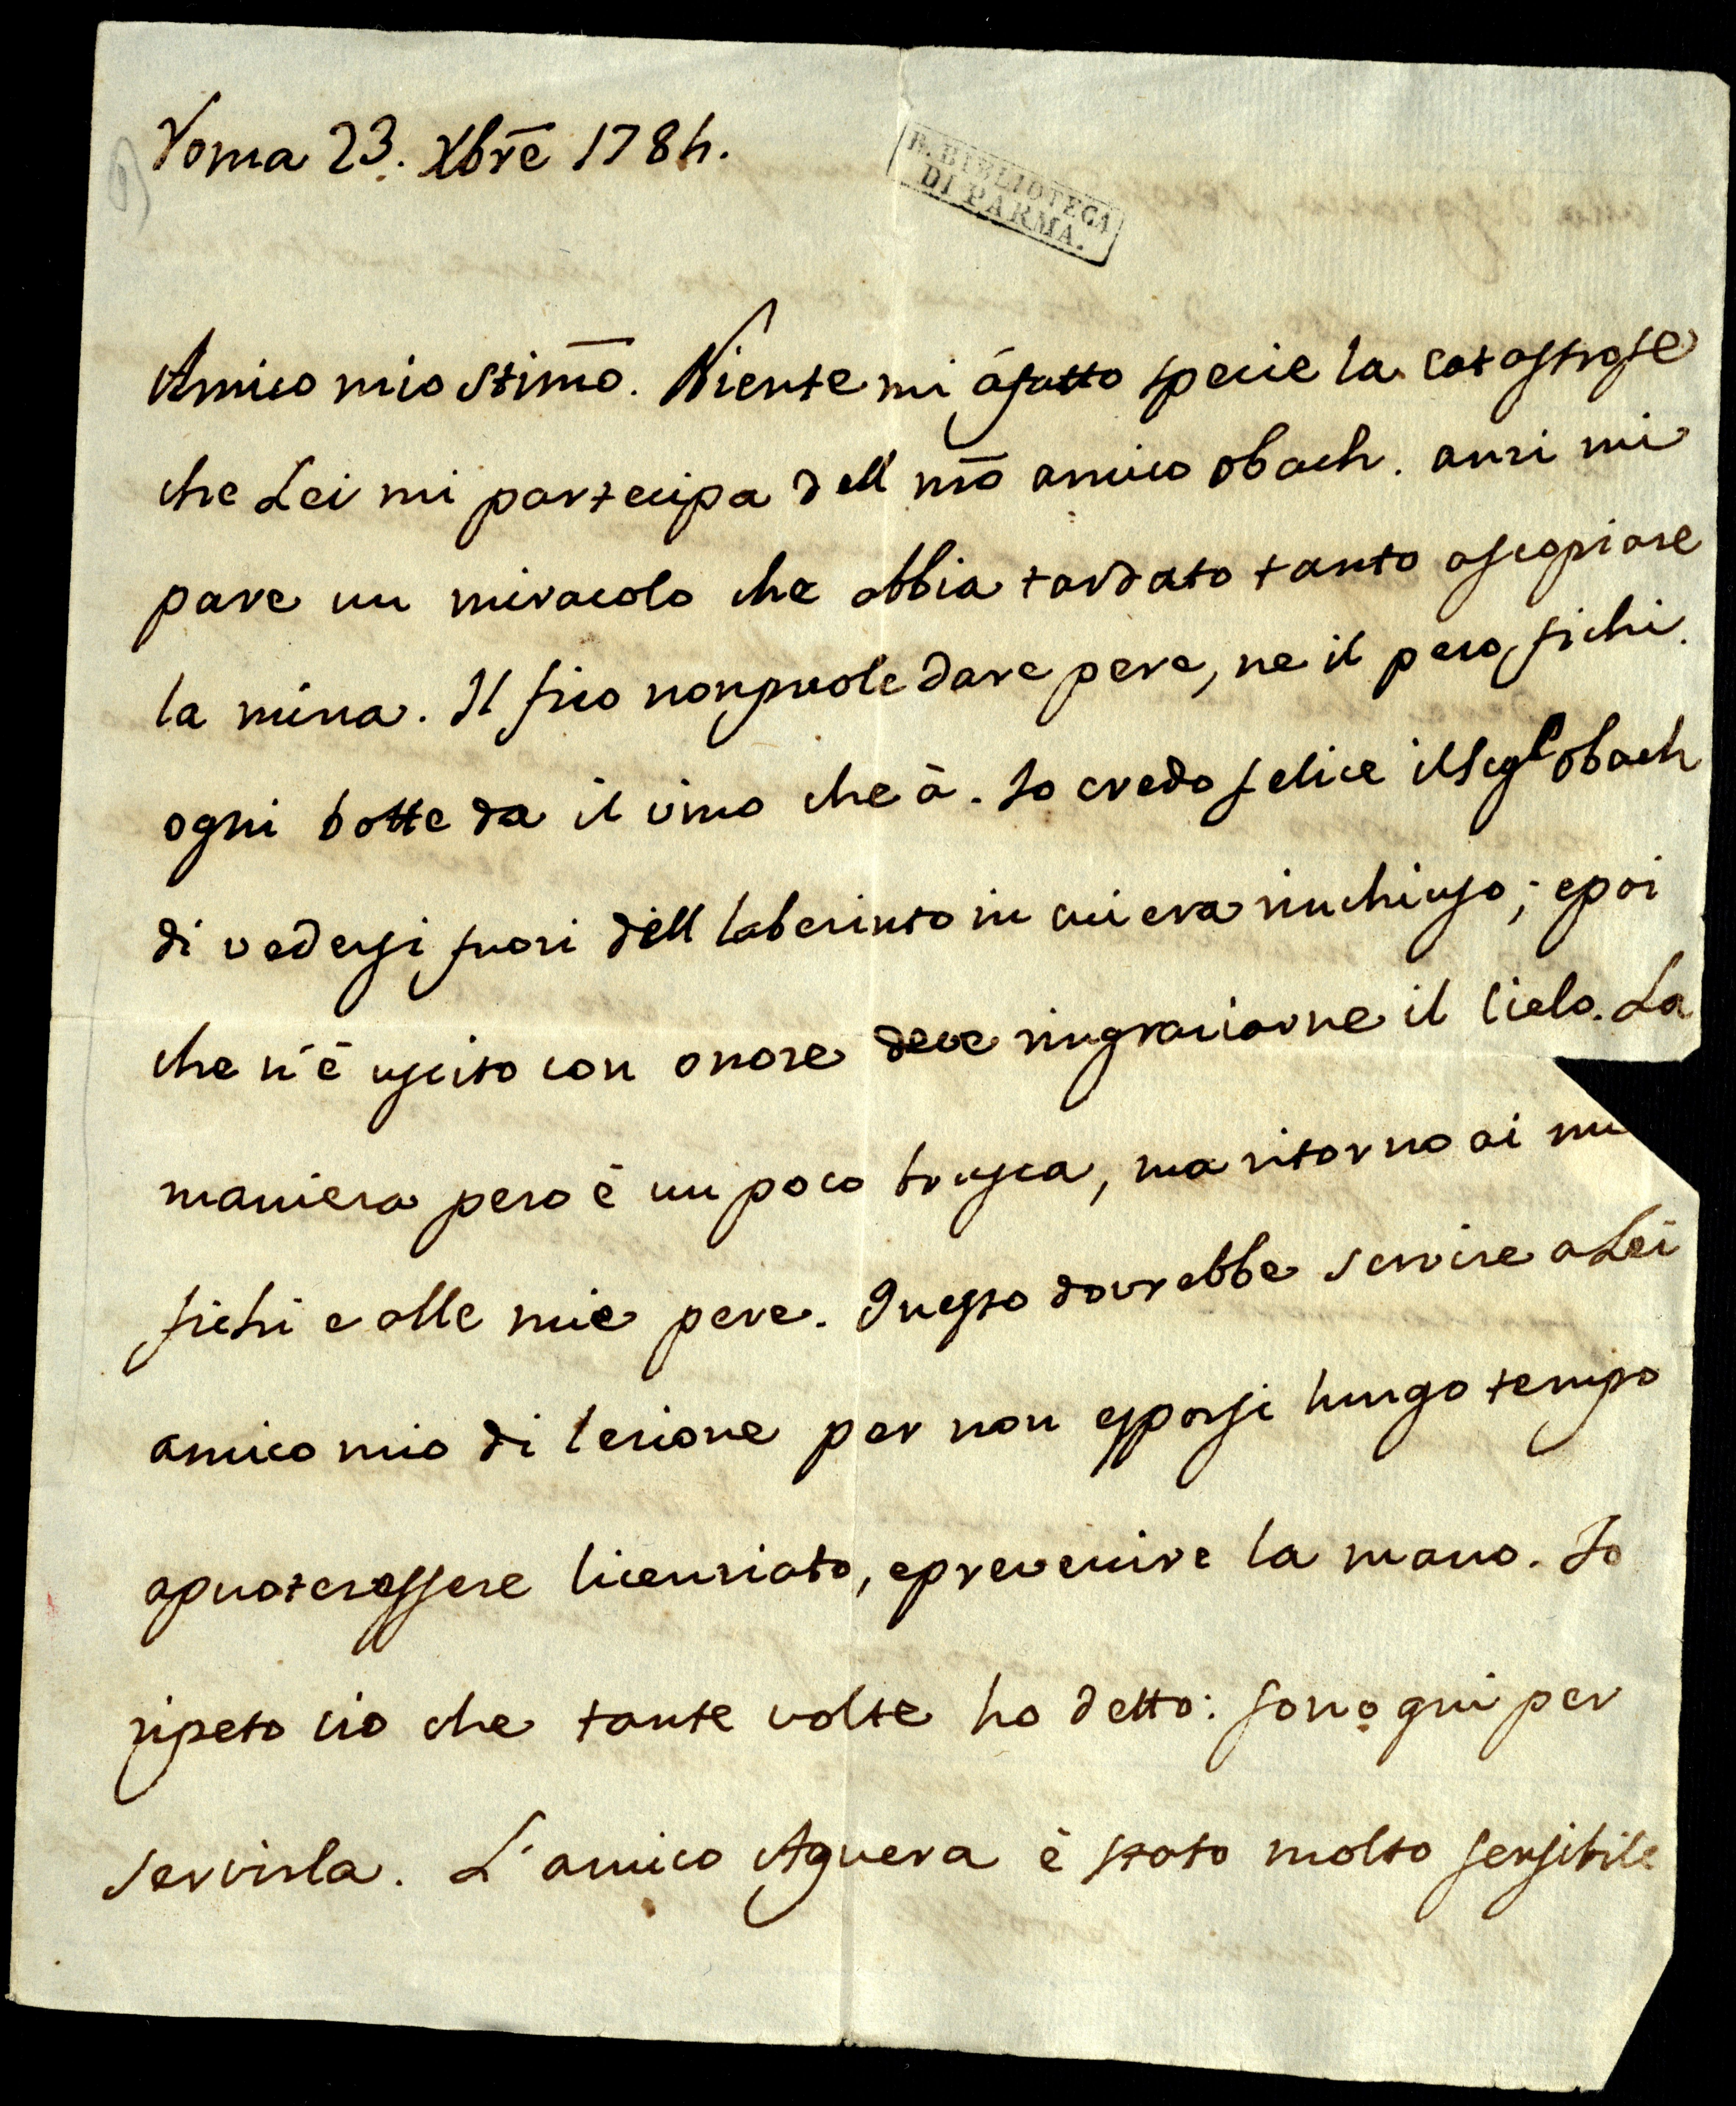 Roma 23. Xbre 1784.
R. BIBLIOTECA
DI PARMA.
Amico mio Stimo. Niente mi á fatto specie la catastrofe
che Lei mi partecipa dell nro amico Obach. anzi mi
pare un miracolo che abbia tardato tanto a scopiare
la mina. Il fico non puole dare pere, ne il pero fichi.
ogni botte da il vino che à. Io credo felice il Sigr Obach
di vedersi fuori dell laberinto in cui era rinchiuso; e poi
che n'è uscito con onore deve ringraziarne il Cielo. La
maniera pero è un poco brusca, ma ritorno ai
fichi e alle mie pere. Questo dovrebbe servire a Lei
amico mio di lezione per non esporsi lungo tempo
a puoter essere licenziato, e prevenire la mano. Io
ripeto cio che tante volte ho detto: sono qui per
servirla. L'amico Aguera è stato molto sensibile